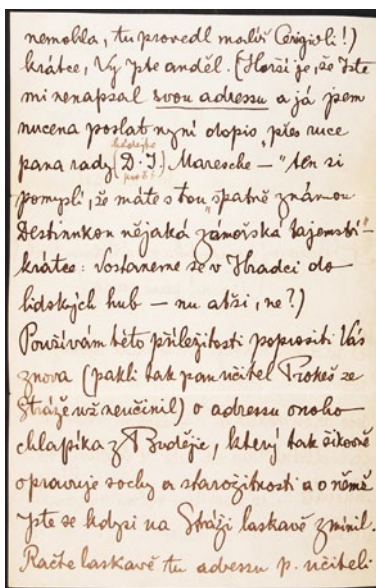 nemohla, tu provedl malíř Cerigioli!)
krátce, Vy jste anděl. (Horší je, že Jste
mi nenapsal svou adressu a já jsem
nucena poslat nyní dopis „přes ruce
pana rady (D. I.) Maresche – “ten si
pomyslí, že máte s tou „špatně známou
Destinnkou nějaká zámořská tajemství –
krátce: dostaneme se v Hradci do
lidských hub – nu atsi, ne?)
Používám této příležitosti poprositi Vás
znova (pakli tak pan učitel Prokeš ze
Stráže už neučinil) o adressu onoho
chlapíka z Buděјic, který tak šikovně
opravuje sochy a starožitnosti a o němž
jste se kdysi na Stráži laskavě zmínil.
Račte laskavě tu adressu p. učiteli